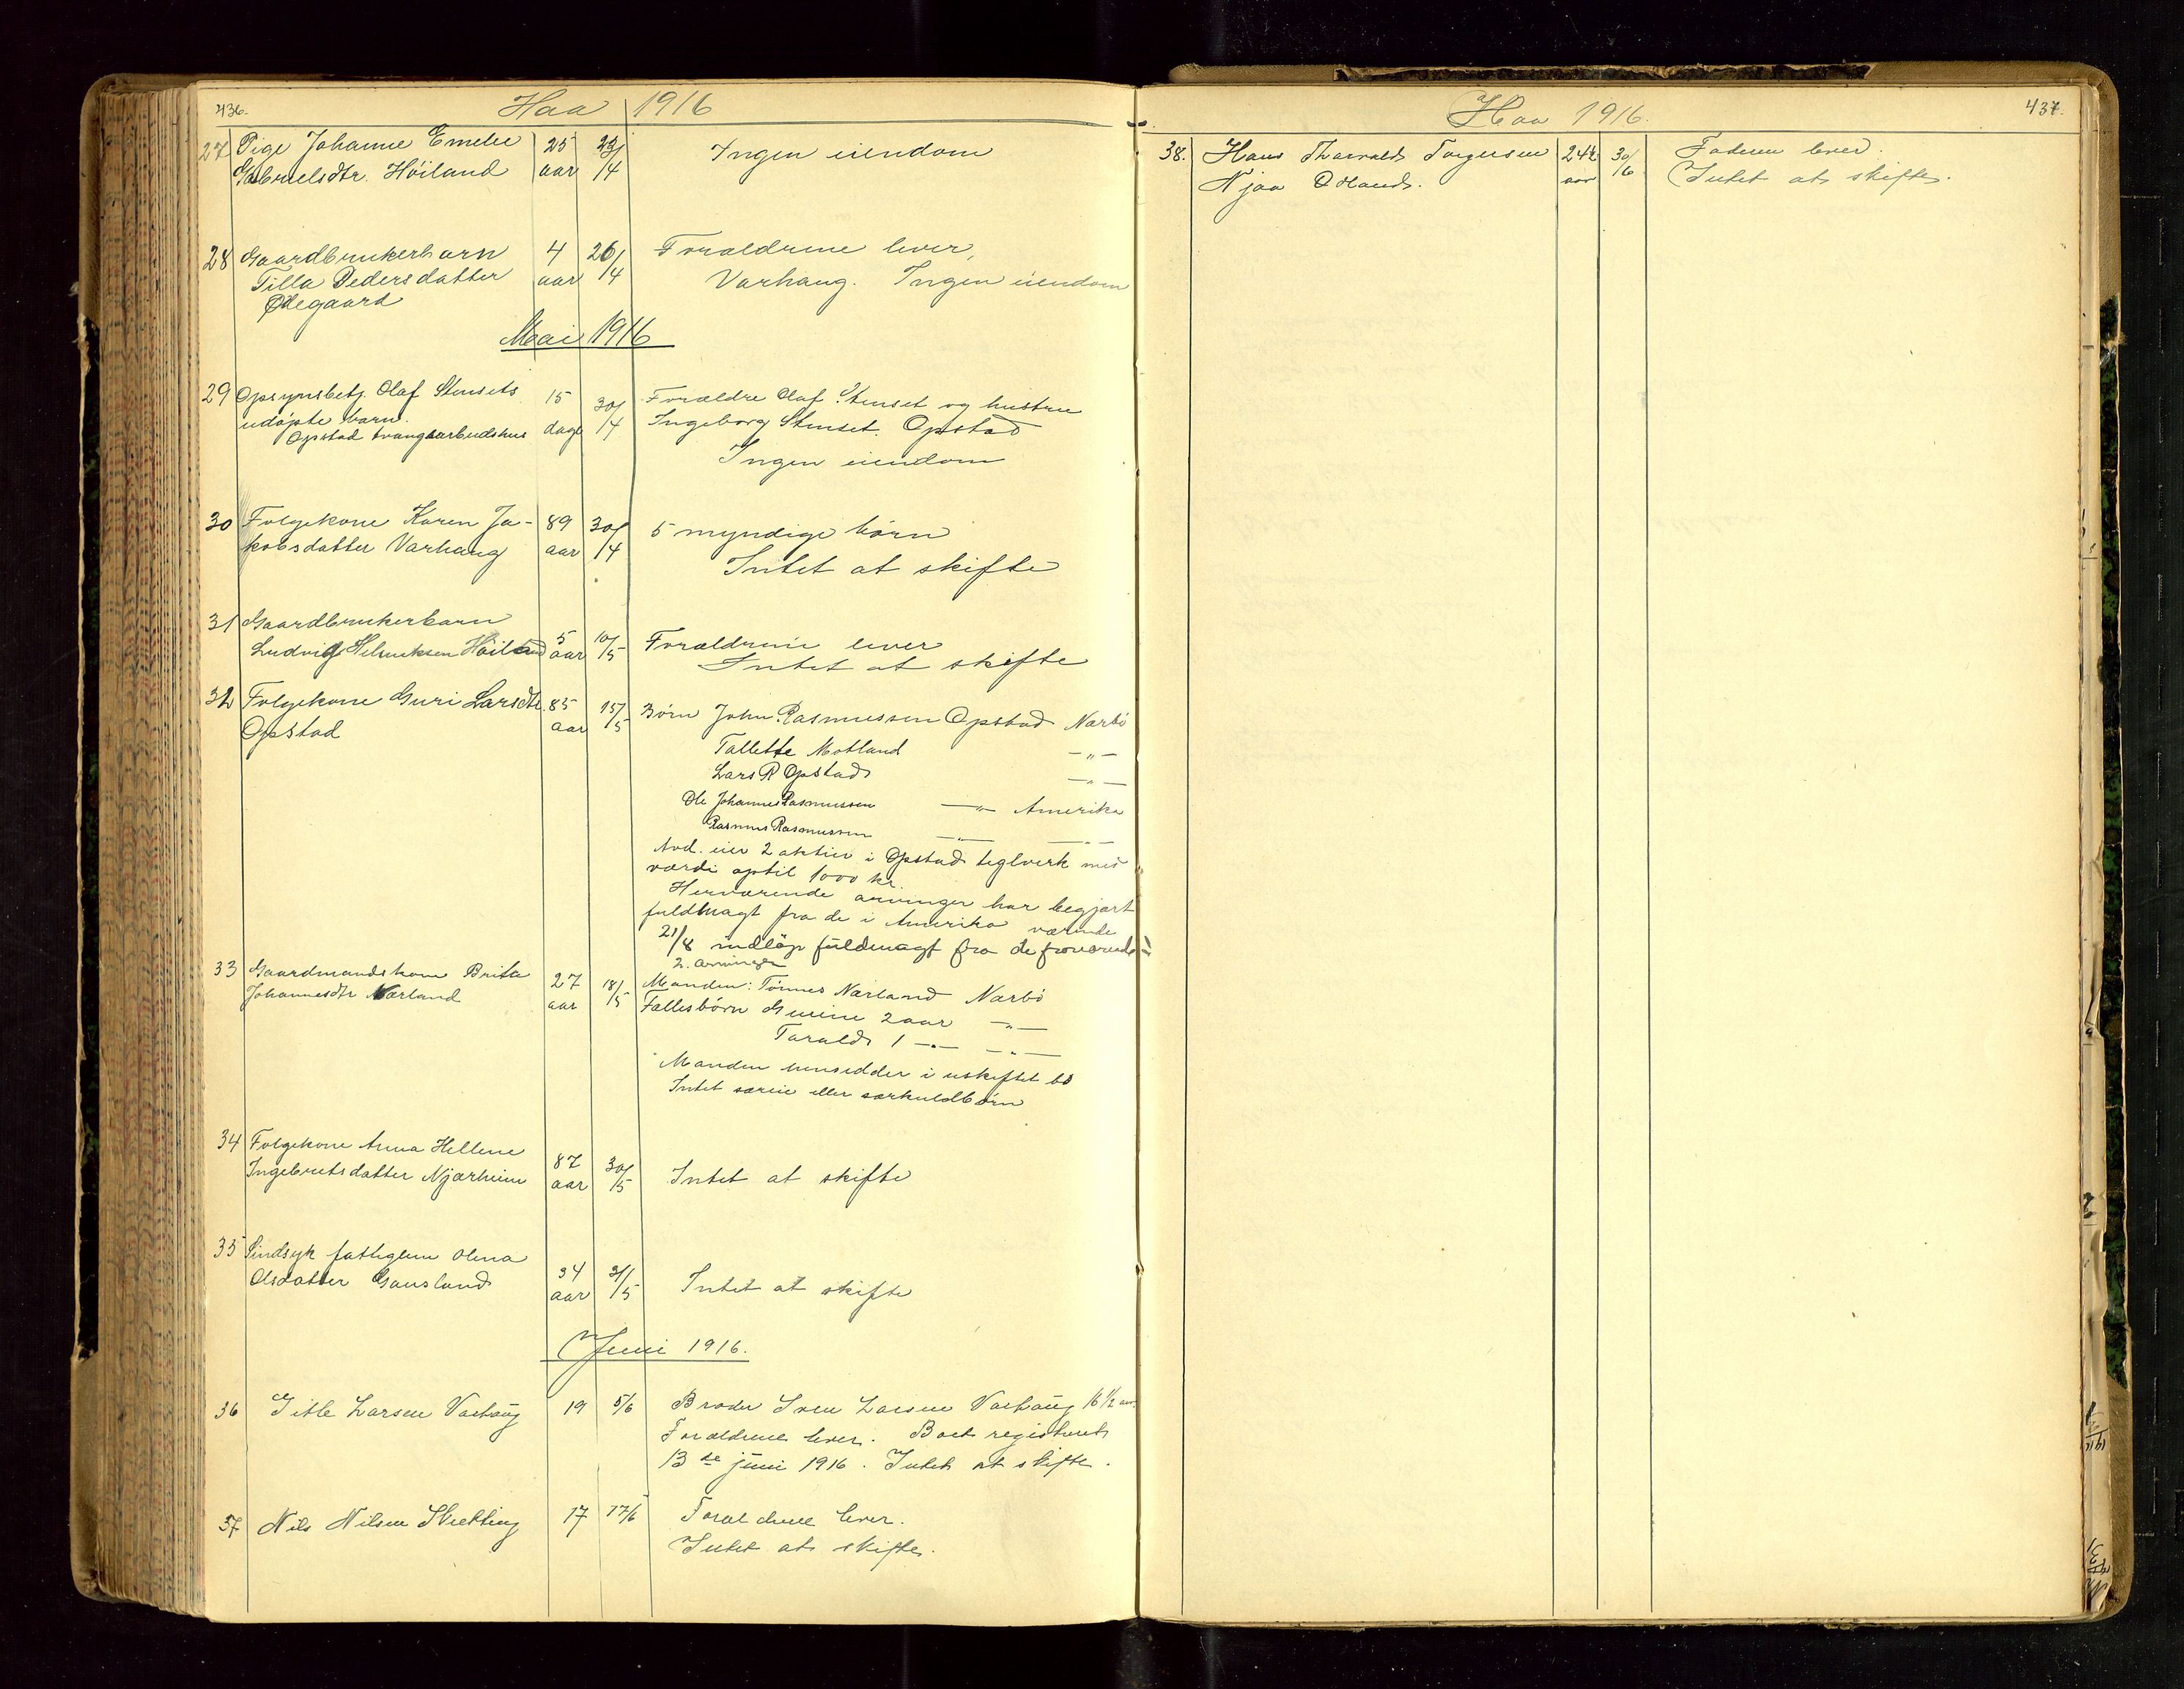 436.
Haa 1916
27 Pige Johanne Emelie 25 23/4 Ingen eiendom
Gabrielsdtr. Höiland aar
28 Gaardbrukerbarn 4 26/4 Forældrene lever,
Tilla Pedersdatter aar Varhaug. Ingen eiendom
Ødegaard
Mai 1916
29 Opsynsbetj. Olaf Stensets 15 30/4 Forældre Olaf Stenset og hustru
udöpte barn. dage Ingeborg Stenset. Opstad
Opstad tvangsarbeidshus Ingen eiendom
30 Folgekone Karen Ja- 89 30/4 5 myndige börn
kobsdatter Varhaug aar Intet at skifte
31 Gaardbrukerbarn
Ludvig Helmiksen Höiland 5 aar 10/5 Forældrene lever
Intet at skifte
32 Folgekone Guri Larsdtr. 85 15/5 Börn John Rasmussen Opstad Nærbö
Opstad aar Tallette Motland -"-
Lars R Opstad -"-
Ole Johannes Rasmussen -"- Amerika
Rasmus Rasmussen -"- -"-
Avd. eier 2 aktier i Opstad teglverk med
værdi optil 1000 kr.
Herværende arvinger har begjært
fuldmagt fra de i Amerika værende
21/8 indlöp fuldmagt fra de fraværende
2 arvinger
33 Gaardmandskone Brita 27 18/5 Manden: Tönnes Nærland Nærbö
Johannesdtr Nærland aar Fællesbörn Gurine 2 aar -"-
Tarald 1 -"- -"-
Manden hensidder i uskiftet bo
Intet særeie eller særkuldbörn
34 Folgekone Anna Hellene
Ingebretsdatter Njærheim 87 aar 30/5 Intet at skifte
35 Sindsyk fattiglem Olena
Olsdatter Gausland 34 aar 31/5 Intet at skifte
Juni 1916.
36 Gitle Larsen Varhaug 19 5/6 Broder Sven Larsen Varhaug 16 1/2 aar.
Forældrene lever. Boet registreret
13de juni 1916. Intet at skifte.
37 Nils Nilsen Skretting 17 17/6 Forældrene lever.
Intet at skifte.
437.
Haa 1916.
38. Hans Thorvald Torgersen 24 1/2 30/6 Faderen lever.
Njaa Odland. aar Intet at skifte.